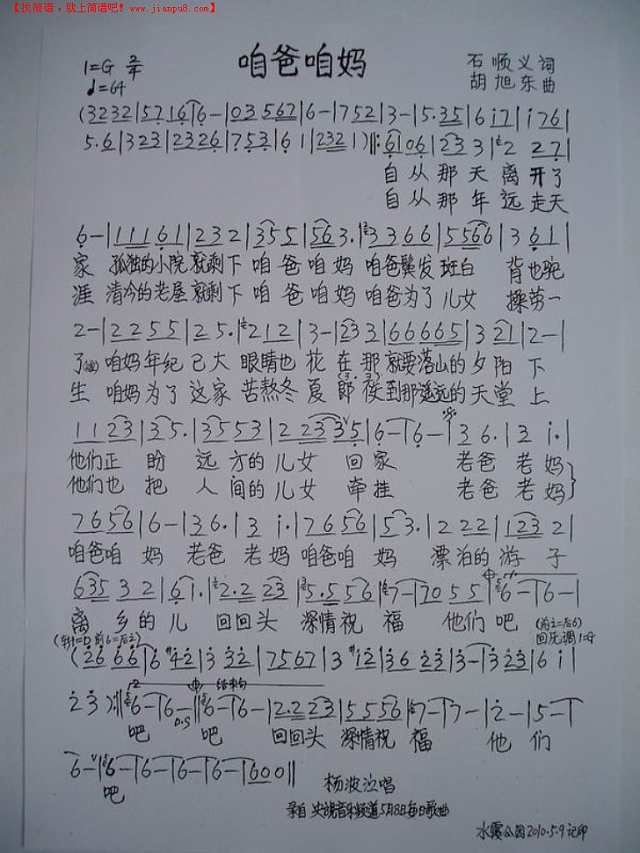 【找简谱，就上简谱吧！www.jianpu8.com】
咱爸咱妈
1=G 2/4
♩=64
石顺义词
胡旭东曲
(3232|5716|6-|03567|6-|7552|3-|5.35|6i7|i76|
5.6|323|2326|753|61|2321)|:6106|233|2 27|
自从那天离开了
自从那年远走天
6-|11161|232|355|563.|3366|5566|361|
家 孤独的小院就剩下咱爸咱妈 咱爸鬓发斑白 背也驼
涯 清冷的老屋就剩下咱爸咱妈 咱爸为了儿女 操劳一
2-|2255|25.|212|3-|233|66665|321|2-|
了 咱妈年纪已大 眼睛也花 在那就要落山的夕阳下
生 咱妈为了这家 苦熬冬夏 即使到那遥远的天堂上
1123|35.|3553|22335|6-|6-|36.|3i.|
他们正盼远方的儿女回家 老爸老妈
他们也把人间的儿女牵挂 老爸老妈
7656|6-|36.|3i.|7656|53.|222|1232|
咱爸咱妈 老爸老妈 咱爸咱妈 漂泊的游子
63532|61.|2.223|5.556|7-|7055|6-|6-|
离乡的儿 回回头 深情祝福 他们吧
(转1=D前6=后2)
(前2=后6)
回先调1=G
(2666|642|332|7567|3 12|3623|3-|323|6i|
结束句
23):|6-|6-|6-|6-|2.223|5556|7-|7-|2-|2-|5-|
D.S
吧 吧 回回头 深情祝福 他们
6-|6-|6-|6-|6-|600||
吧
杨波演唱
录自央视音乐频道5月8日每日歌曲
2010.5.9记印